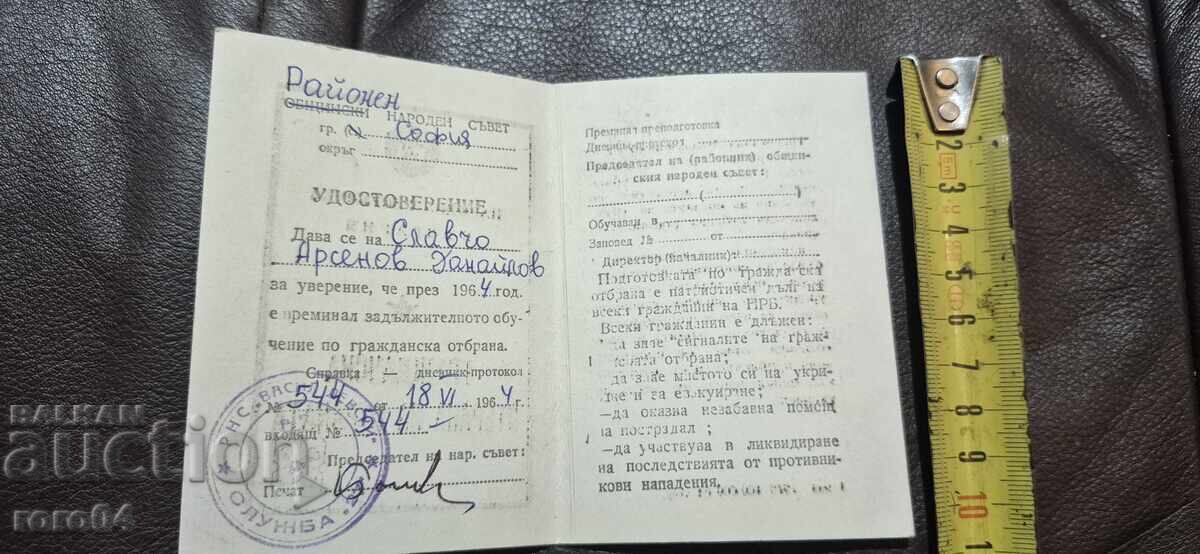 Районен
ОБЩИНСКИ НАРОДЕН СЪВЕТ
гр. (с) София
окръг
УДОСТОВЕРЕНИЕ
Дава се на Славчо
Арсенов Ханайров
за уверение, че през 1964 год.
е преминал задължителното обу-
чение по гражданска отбрана.
Справка — дневник-протокол
№ 544 от 18 VI 1964 г.
входящ № 544
Председател на нар. съвет:
Печат
СЛУЖБА
Преминал преподготовка
Дневник-протокол
Председател на (районния) общин-
ския народен съвет:
( )
Обучаван в
Заповед № от
Директор (началник):
Подготовката по гражданска
отбрана е патриотичен дълг на
всеки гражданин на НРБ.
Всеки гражданин е длъжен:
да знае сигналите на граж-
данската отбрана;
да знае мястото си на укри-
тие и за евакуиране;
—да оказва незабавна помощ
на пострадал;
—да участвува в ликвидиране
на последствията от противни-
кови нападения.
2
3
4
5
6
7
8
9
10
BALKAN
auction
roro64